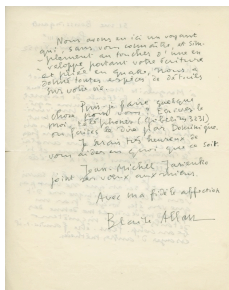 Nous avons eu ici un voyant
qui, sans vous connaître et sim-
plement au toucher d'une en-
veloppe portant votre écriture
et pliée en quatre, nous a
donné toutes espèces de détails
sur votre vie.
Puis-je faire quelque
chose pour vous ? Ecrivez le
moi, téléphonez
ou faites le dire par Dominique.
Je serais très heureux de
vous aider en quoi que ce soit.
Jean-Michel
joint ses vœux aux miens.
Avec ma fidèle affection
Blaise Allan